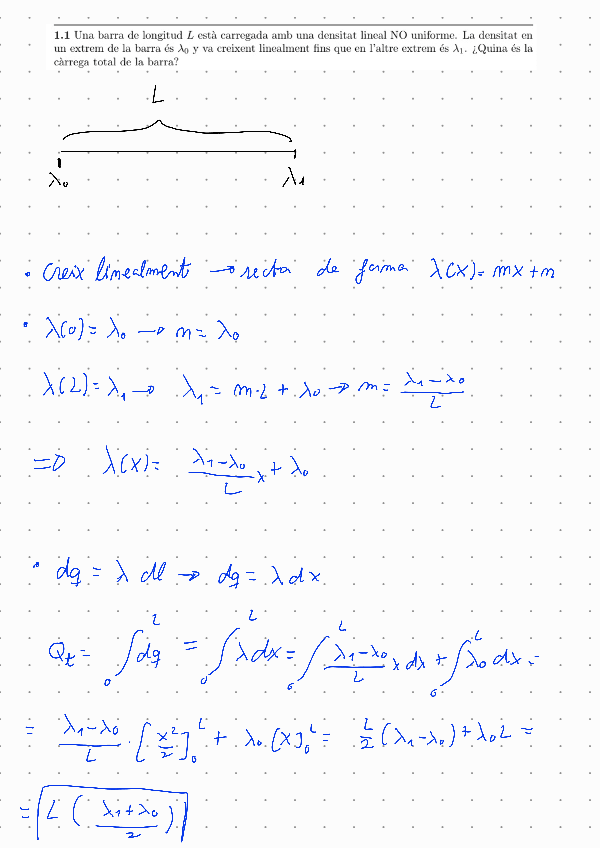 1.1 Una barra de longitud L està carregada amb una densitat lineal NO uniforme. La densitat en
un extrem de la barra és λ₀ y va creixent linealment fins que en l'altre extrem és λ₁. ¿Quina és la
càrrega total de la barra?
L
λ₀ λ₁
• Creix linealment → recta de forma λ(x) = mx + n
• λ(0) = λ₀ → n = λ₀
λ(L) = λ₁ → λ₁ = m·L + λ₀ → m = (λ₁ - λ₀)/L
⇒ λ(x) = (λ₁ - λ₀)/L x + λ₀
• dq = λ dl → dq = λ dx
Qt = ∫₀ᴸ dq = ∫₀ᴸ λ dx = ∫₀ᴸ (λ₁ - λ₀)/L x dx + ∫₀ᴸ λ₀ dx =
= (λ₁ - λ₀)/L · [x²/2]₀ᴸ + λ₀ · [x]₀ᴸ = L/2 (λ₁ - λ₀) + λ₀ L =
= L ( (λ₁ + λ₀)/2 )